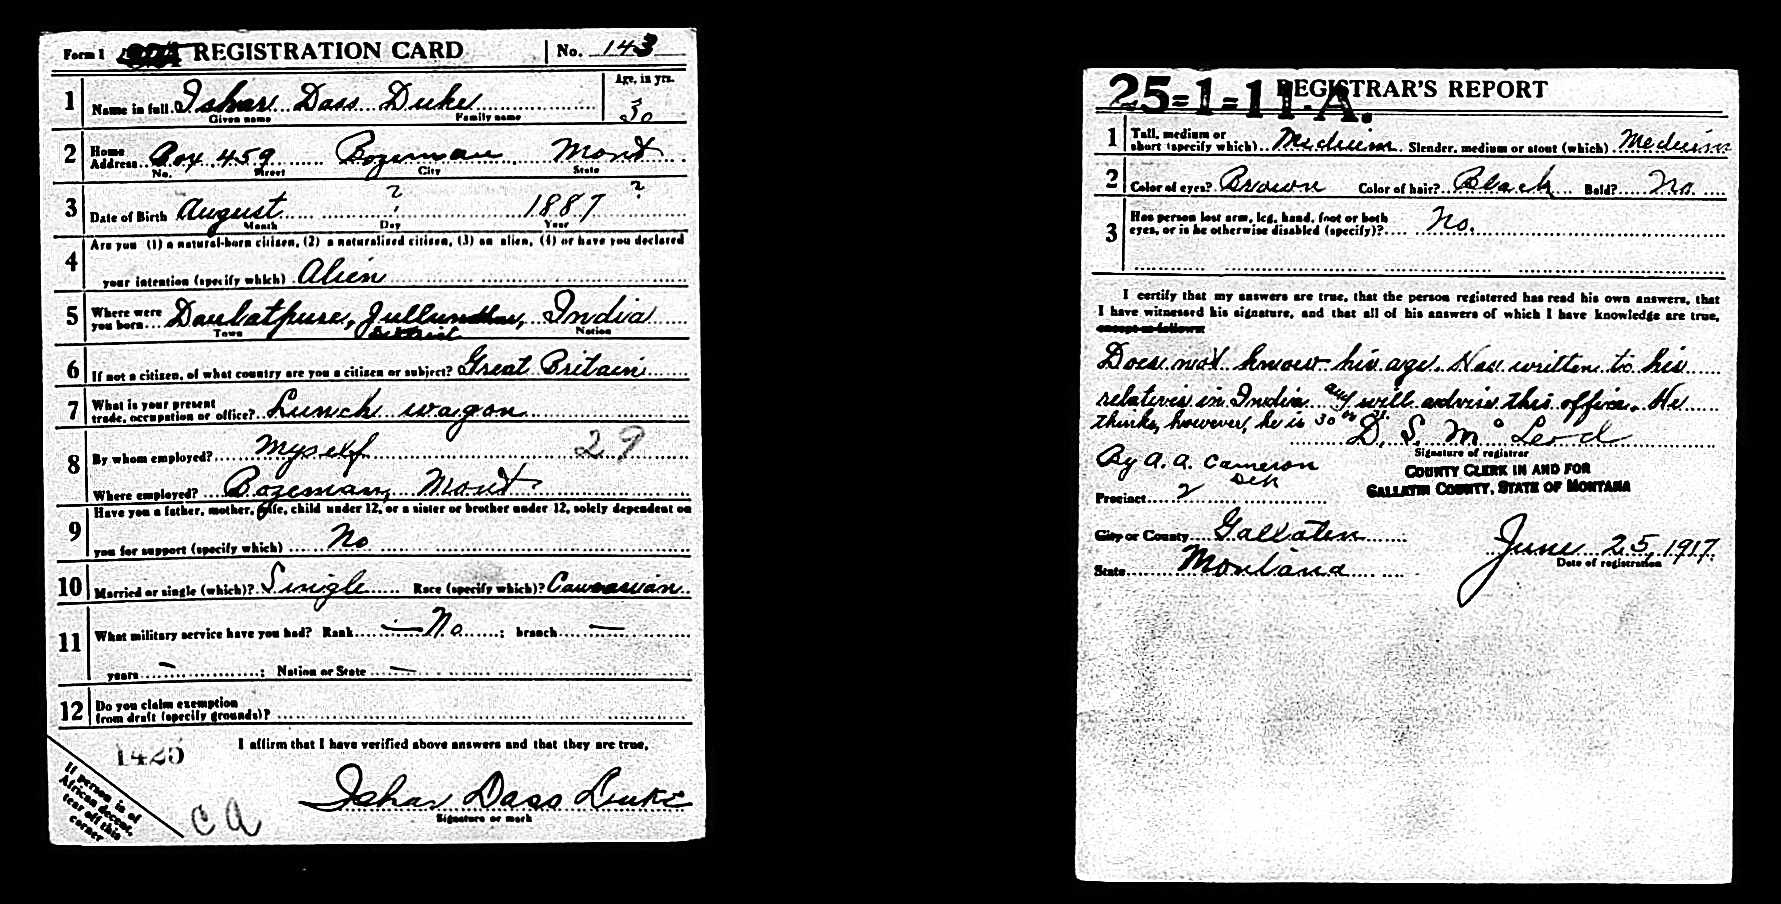 Form 1 REGISTRATION CARD No. 143
1 Name in full Ishar Dass Duke Age, in yrs. 30
Given name Family name
2 Home Address Box 459 Bozeman Mont
No. Street City State
3 Date of Birth August ? 1887 ?
Month Day Year
4 Are you (1) a natural-born citizen, (2) a naturalized citizen, (3) an alien, (4) or have you declared
your intention (specify which) Alien
5 Where were you born Daulatpure, Jullundhar, India
Town District Nation
6 If not a citizen, of what country are you a citizen or subject? Great Britain
7 What is your present trade, occupation or office? Lunch wagon
8 By whom employed? Myself 29
Where employed? Bozeman, Mont
9 Have you a father, mother, wife, child under 12, or a sister or brother under 12, solely dependent on
you for support (specify which) No
10 Married or single (which)? Single Race (specify which)? Caucasian
11 What military service have you had? Rank — No ; branch —
years — ; Nation or State —
12 Do you claim exemption from draft (specify grounds)?
I affirm that I have verified above answers and that they are true.
1425
Ishar Dass Duke
Signature or mark
If person is of
African decent,
tear off this
corner
CA
25=1=11-A.
REGISTRAR'S REPORT
1 Tall, medium or short (specify which) Medium Slender, medium or stout (which) Medium
2 Color of eyes? Brown Color of hair? Black Bald? No
3 Has person lost arm, leg, hand, foot or both
eyes, or is he otherwise disabled (specify)? No.
I certify that my answers are true, that the person registered has read his own answers, that
I have witnessed his signature, and that all of his answers of which I have knowledge are true,
except as follows:
Does not know his age. Has written to his
relatives in India and will advise this office. He
thinks, however, he is 30 or 31.
D. S. McLeod
Signature of registrar
By A. A. Cameron
Dep
COUNTY CLERK IN AND FOR
GALLATIN COUNTY, STATE OF MONTANA
Precinct 2
City or County Gallaten
June 25, 1917
Date of registration
State Montana